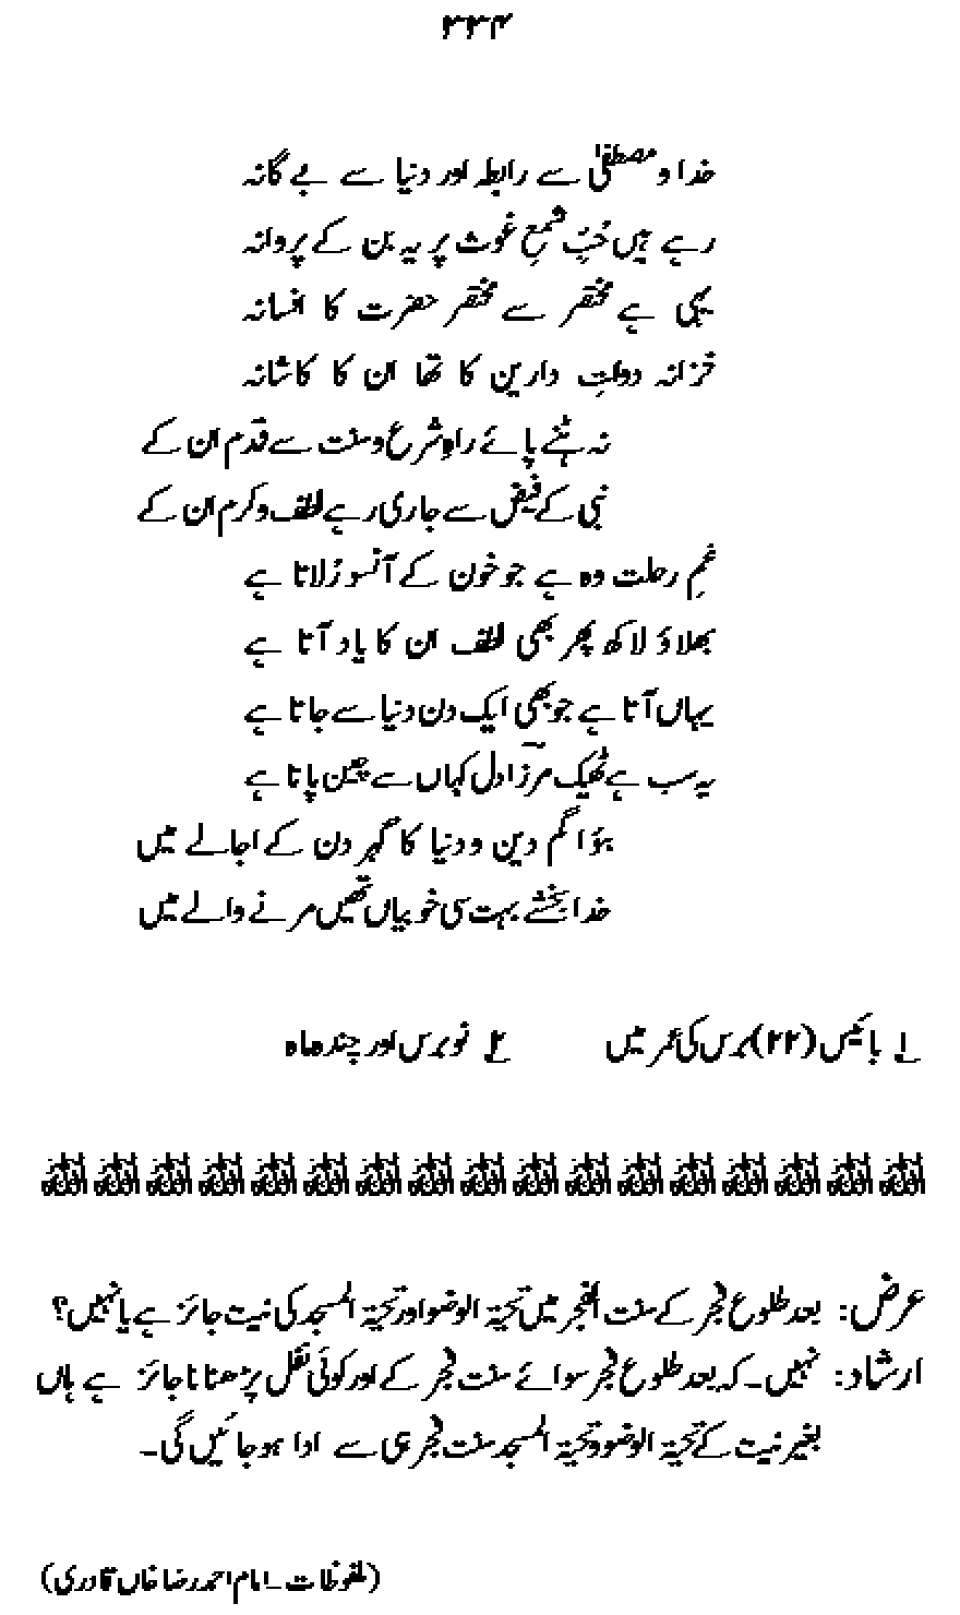 ۲۳۴
خدا و مصطفیٰ سے رابطہ اور دنیا سے بے گانہ
رہے ہیں حُبِّ شمعِ غوث پر یہ بن کے پروانہ
یہی ہے مختصر سے مختصر حضرت کا افسانہ
خزانہ دولتِ دارین کا تھا ان کا کاشانہ
نہ ہٹنے پائے راہِ شرع و سنت سے قدم ان کے
نبی کے فیض سے جاری رہے لطف و کرم ان کے
غمِ رحلت وہ ہے جو خون کے آنسو رُلاتا ہے
بھلاؤ لاکھ پھر بھی لطف ان کا یاد آتا ہے
یہاں آتا ہے جو بھی ایک دن دنیا سے جاتا ہے
یہ سب ہے ٹھیک مرزاؔ دل کہاں سے چین پاتا ہے
ہؤا گم دین و دنیا کا گہر دن کے اجالے میں
خدا بخشے بہت سی خوبیاں تھیں مرنے والے میں
۱؎ بائیس (۲۲) برس کی عمر میں ۲؎ نو برس اور چند ماہ
عرض: بعد طلوع فجر کے سنت الفجر میں تحیۃ الوضو اور تحیۃ المسجد کی نیت جائز ہے یا نہیں؟
ارشاد: نہیں۔ کہ بعد طلوع فجر سوائے سنت فجر کے اور کوئی نفل پڑھنا ناجائز ہے ہاں
بغیر نیت کے تحیۃ الوضو و تحیۃ المسجد سنت فجر ہی سے ادا ہو جائیں گی۔
(ملفوظات۔ امام احمد رضا خاں قادری)